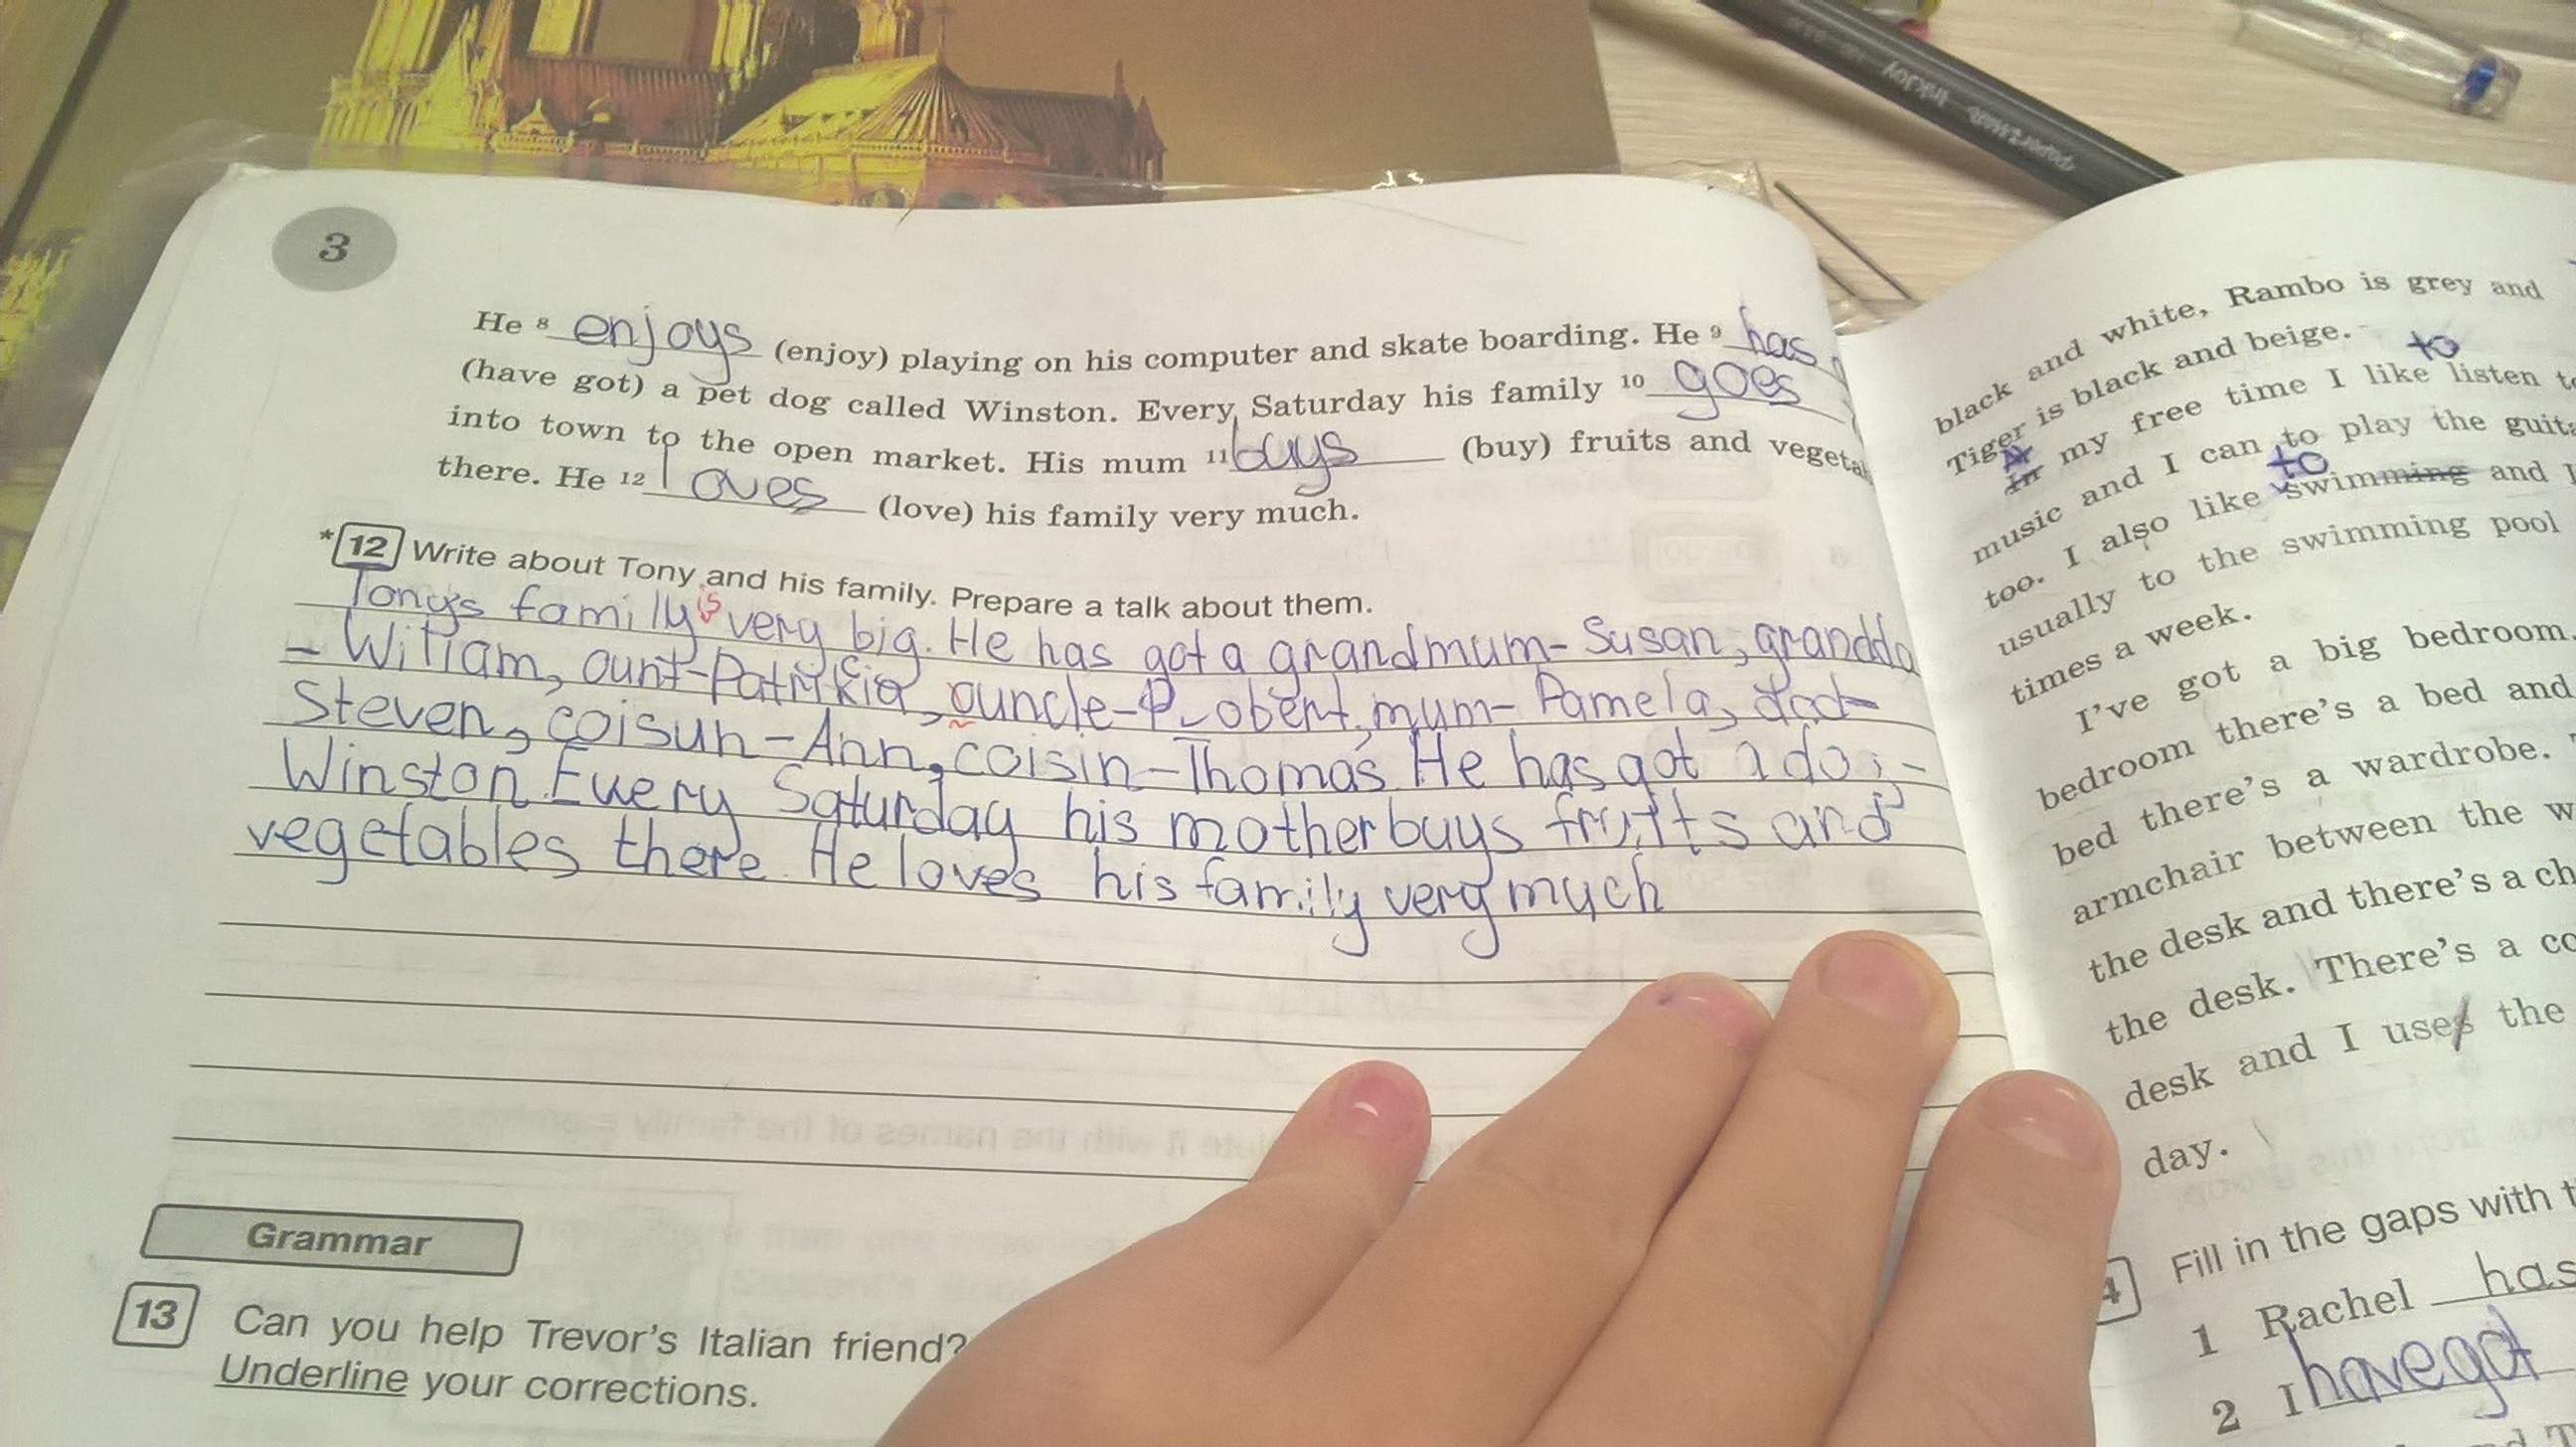 3
He 8 enjoys (enjoy) playing on his computer and skate boarding. He 9 has
(have got) a pet dog called Winston. Every Saturday his family 10 goes
into town to the open market. His mum 11 buys (buy) fruits and vegeta
there. He 12 loves (love) his family very much.
*12 Write about Tony and his family. Prepare a talk about them.
Tony's family is very big. He has got a grandmum - Susan, grandda
- William, aunt - Patricia, uncle - Robert, mum - Pamela, dad -
Steven, coisun - Ann, coisin - Thomas. He has got a dog -
Winston. Every Saturday his mother buys fruits and
vegetables there. He loves his family very much
Grammar
13 Can you help Trevor's Italian friend?
Underline your corrections.
black and white, Rambo is grey and
Tiger is black and beige.
to
in my free time I like listen to
music and I can to play the guita
to
too. I also like swimming and I
usually to the swimming pool
times a week.
I've got a big bedroom.
bedroom there's a bed and
bed there's a wardrobe.
armchair between the w
the desk and there's a ch
the desk. There's a co
desk and I uses the
day.
4 Fill in the gaps with t
1 Rachel has
2 I have got
PaperMate InkJoy